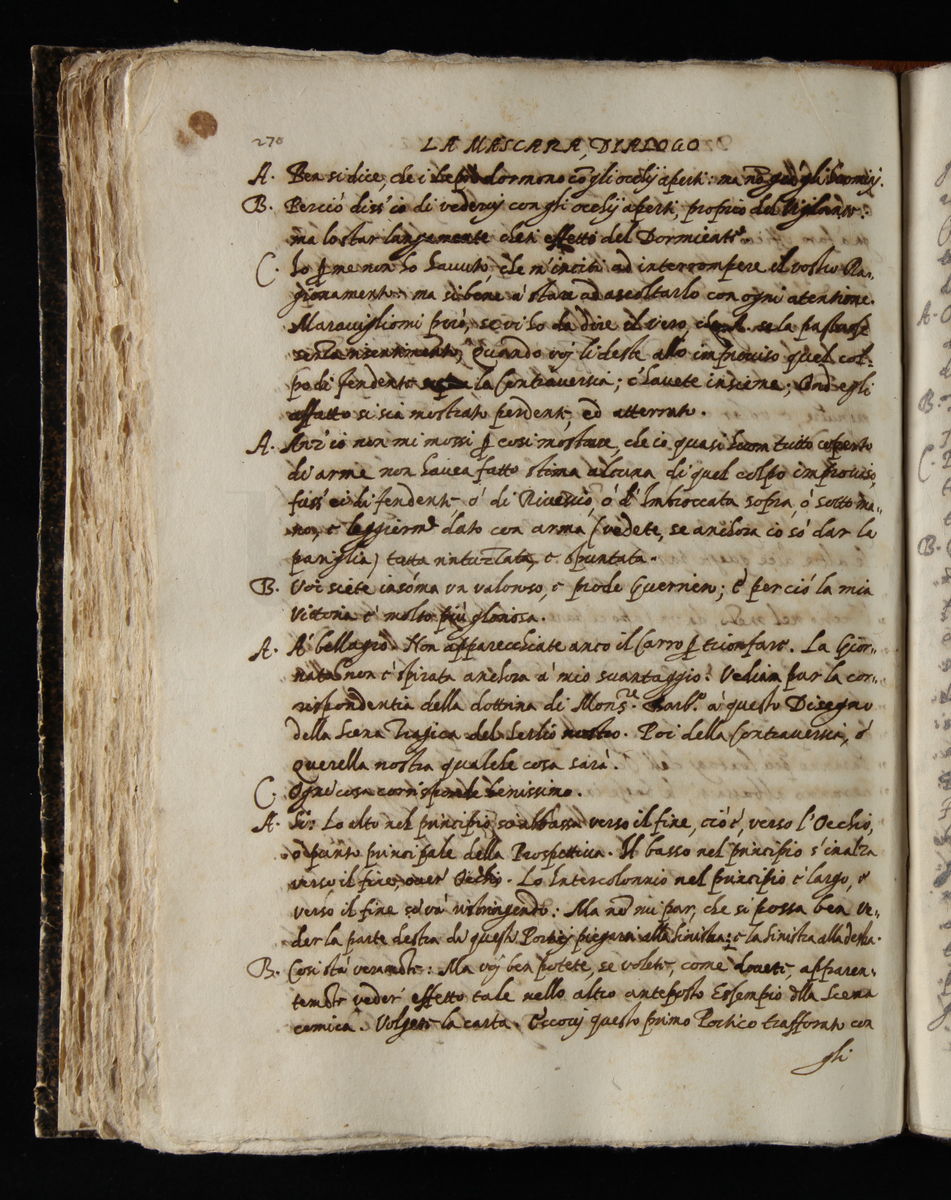 270
LA MASCARA, DIALOGO
A. Ben si dice, che i Lepri dormono cõ gli occhij aperti: ma nõ
B. Perciò diss'io di vedervj con gli occhij aperti, proprio del Vigilante:
ma lo star lungamente cheti effetto del Dormiente.
C. Io p me non hò havuto, che m'inciti ad interrompere il vostro Ra-
gionamento: ma si bene à stare ad ascoltarlo con ogni atentione.
Maravigliomi però, se vi hò da dire il vero, se la
Quando voj li deste allo improviso quel col-
po di fendente la Contraversia; e'havete insieme; Ond'egli
affatto si sia mostrato perdente, ed atterrato.
A. Anz'io non mi mossi p cosi mostrare, che io quasi huom tutto coperto
di arme non havea fatto stima alcuna di quel colpo improviso,
fuss'ei di fendente, ò di Riverscio, ò d'Imbroccata sopra, ò sotto ma-
no, e leggierm.e dato con arma (vedete, se anchora io sò dar la
pariglia) tutta e spuntata.
B. Voi siete insõma un valoroso, e prode Guerriero; e perciò la mia
Vittoria è molto più gloriosa.
A. A' bell'agio. Non apparecchiate anco il Carro p trionfare. La Gior-
nata non è spirata anchora à mio svantaggio. Vedian pur la cor-
rispondentia della dottrina di Mons.re Barb.o à questo Disegno
della Scena Tragica del Serlio nostro. Poi della Contraversia, ò
querella nostra qualche cosa sarà.
C. Ogni cosa corrisponde benissimo.
A. Si: Lo alto nel principio s'abbassa verso il fine, ciò è, verso l'Occhio,
od punto principale della Prospettiva. Il basso nel principio s'inalza
verso il fine, over' Occhio. Lo Intercolonnio nel principio è largo, e
verso il fine si và ristringendo: Ma nõ mi par, che si possa ben ve-
der la parte destra de questi Portici piegarsi alla sinistra; e la sinistra alla destra.
B. Cosi stà veramẽte: Ma voj ben potete, se volete, come dovete, apparen-
temẽte veder' effetto tale nello altro anteposto Essempio dlla Scena
comica. Volgete la carta. Eccovj questo primo Portico trafforato con
gli